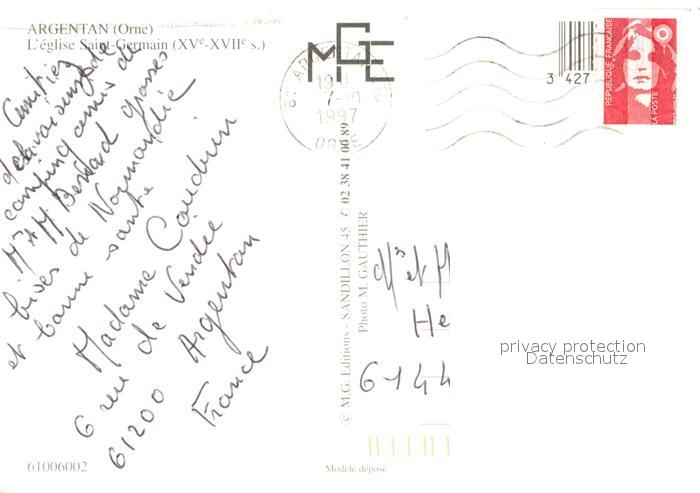 ARGENTAN (Orne)
L'église Saint-Germain (XVe-XVIIe s.)
MGE
61 ARGENTAN
7-10
1997
ORNE
3 427
REPUBLIQUE FRANÇAISE
LA POSTE
Amitiés
de la voisine de
camping amies de
Mr et M Bernard grosses
bises de Normandie
et bonne santé
Madame Coudrin
6 rue de Vendée
61200 Argentan
France
© M.G. Editions - SANDILLON 45 ✆ 02 38 41 00 89
Photo M. GAUTHIER
Mr et M
He
6144
privacy protection
Datenschutz
61006002
Modèle déposé